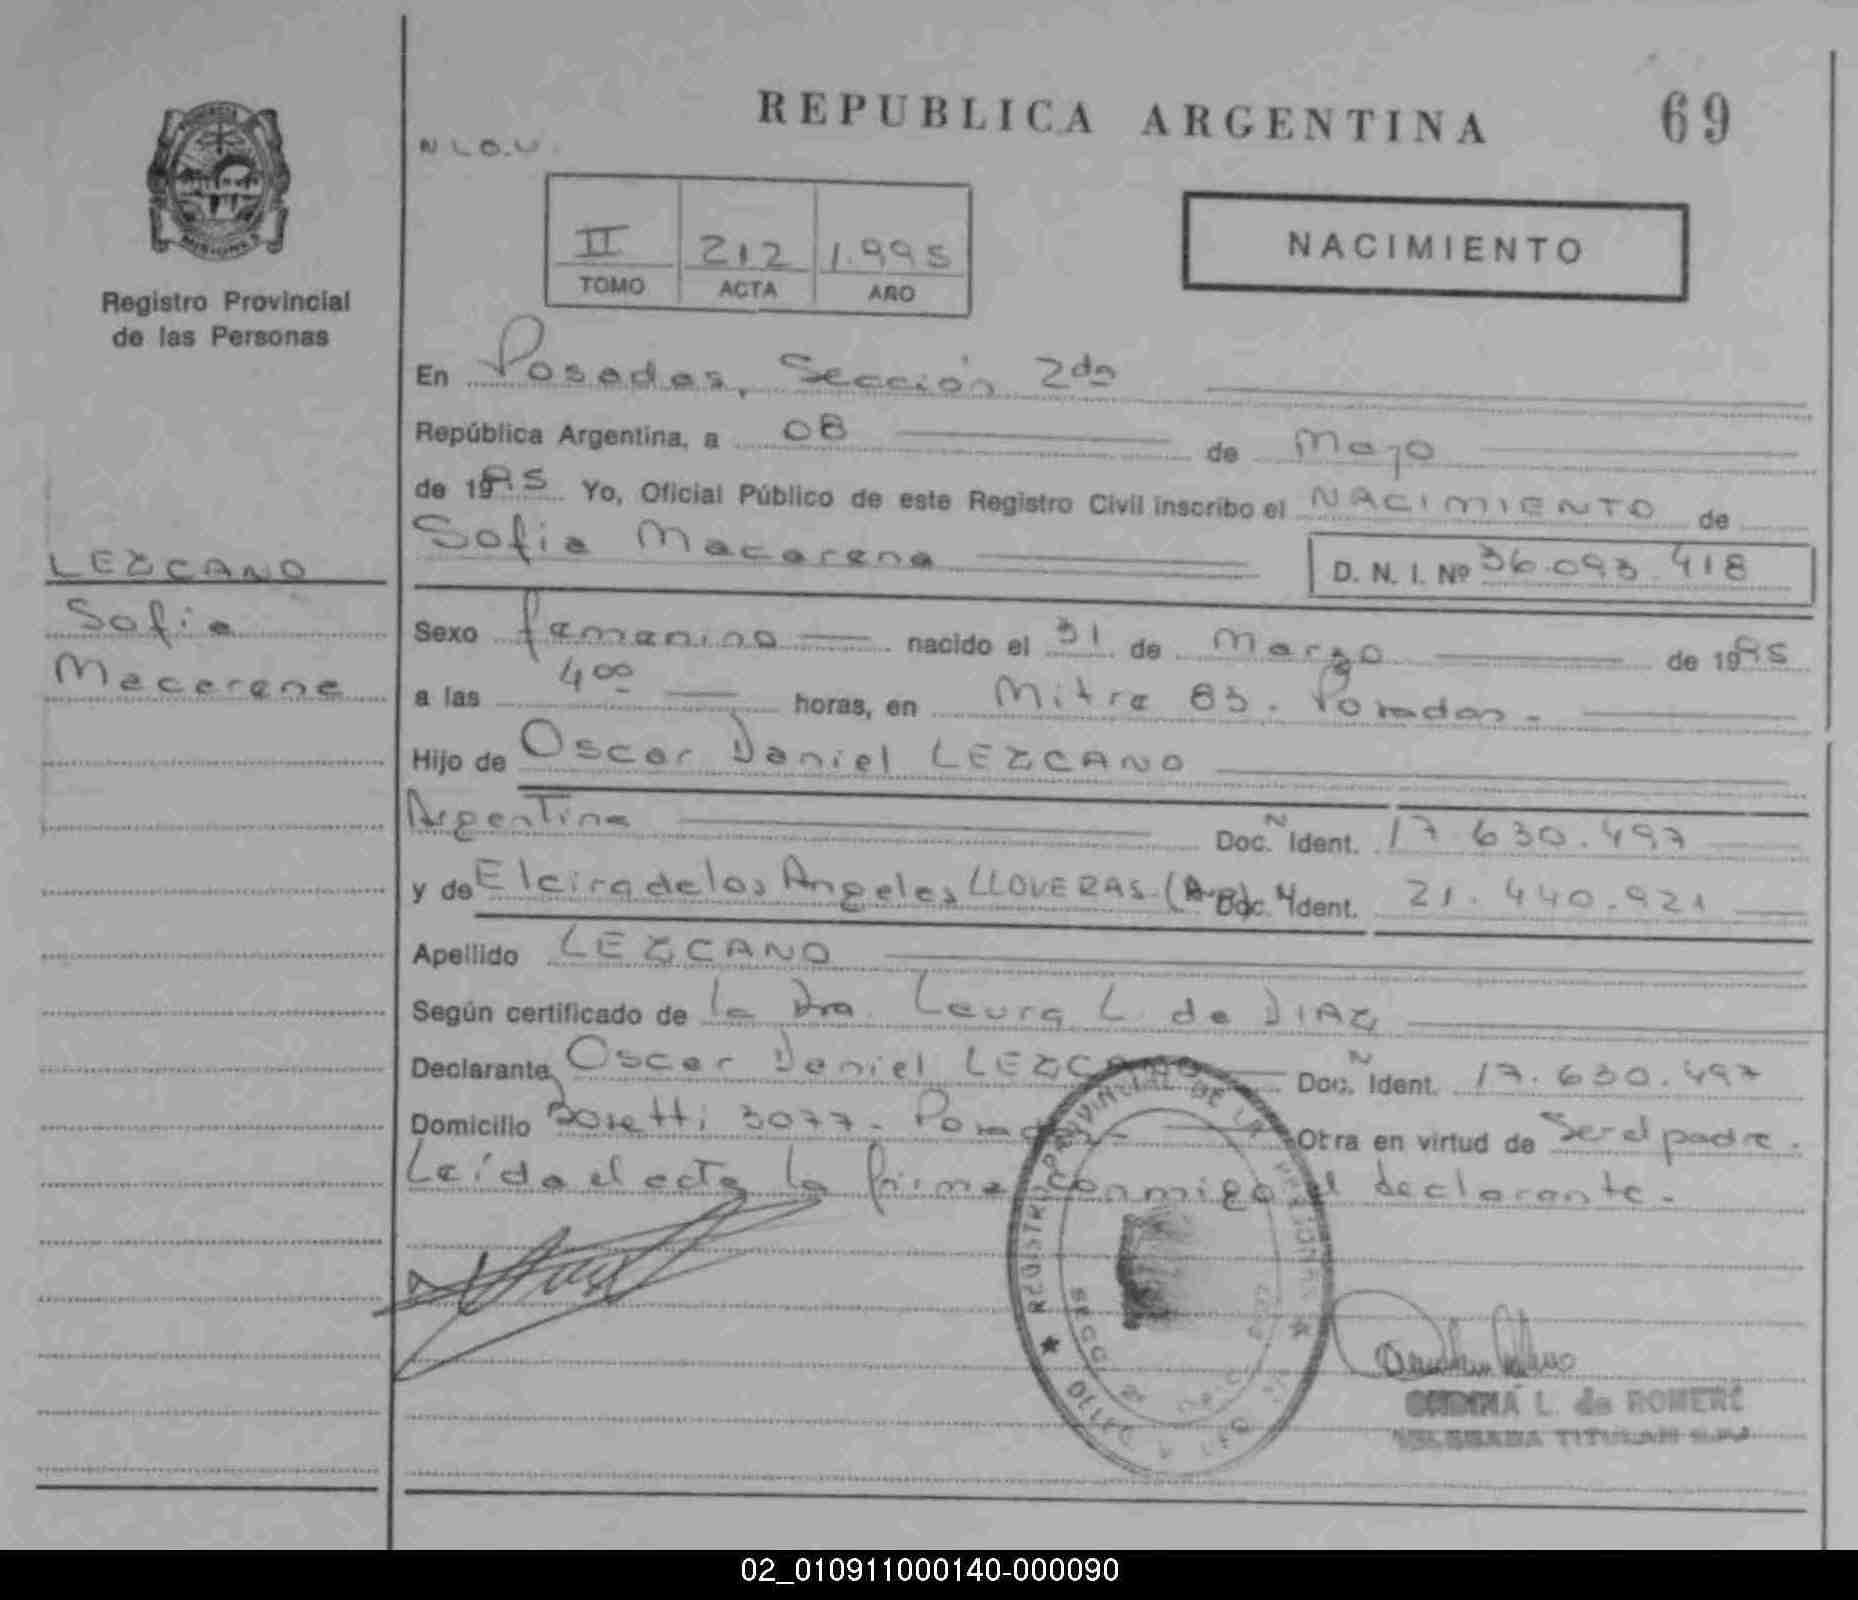 REPUBLICA ARGENTINA
69
N L O. V.
II 212 1.995
TOMO ACTA AÑO
NACIMIENTO
Registro Provincial
de las Personas
LEZCANO
Sofia
Macarena
En Posadas, Sección 2da
República Argentina, a 08 de Mayo
de 1995 Yo, Oficial Público de este Registro Civil inscribo el NACIMIENTO de
Sofia Macarena
D. N. I. Nº 36.093.418
Sexo femenino nacido el 31 de Marzo de 1995
a las 4 00 horas, en Mitre 83. Posadas.
Hijo de Oscar Daniel LEZCANO
Argentina Doc. N Ident. 17.630.497
y de Elcira de los Angeles LLOVERAS (Arg) Doc. N Ident. 21.440.921
Apellido LEZCANO
Según certificado de la Dra. Laura L. de DIAZ
Declarante Oscar Daniel LEZCANO Doc. N Ident. 17.630.497
Domicilio Bosetti 3077. Posadas. Otra en virtud de Ser el padre.
Leída el acta la firma conmigo el declarante.
REGISTRO PROVINCIAL DE LAS PERSONAS
L. de ROMERE
TITULAR
02_010911000140-000090